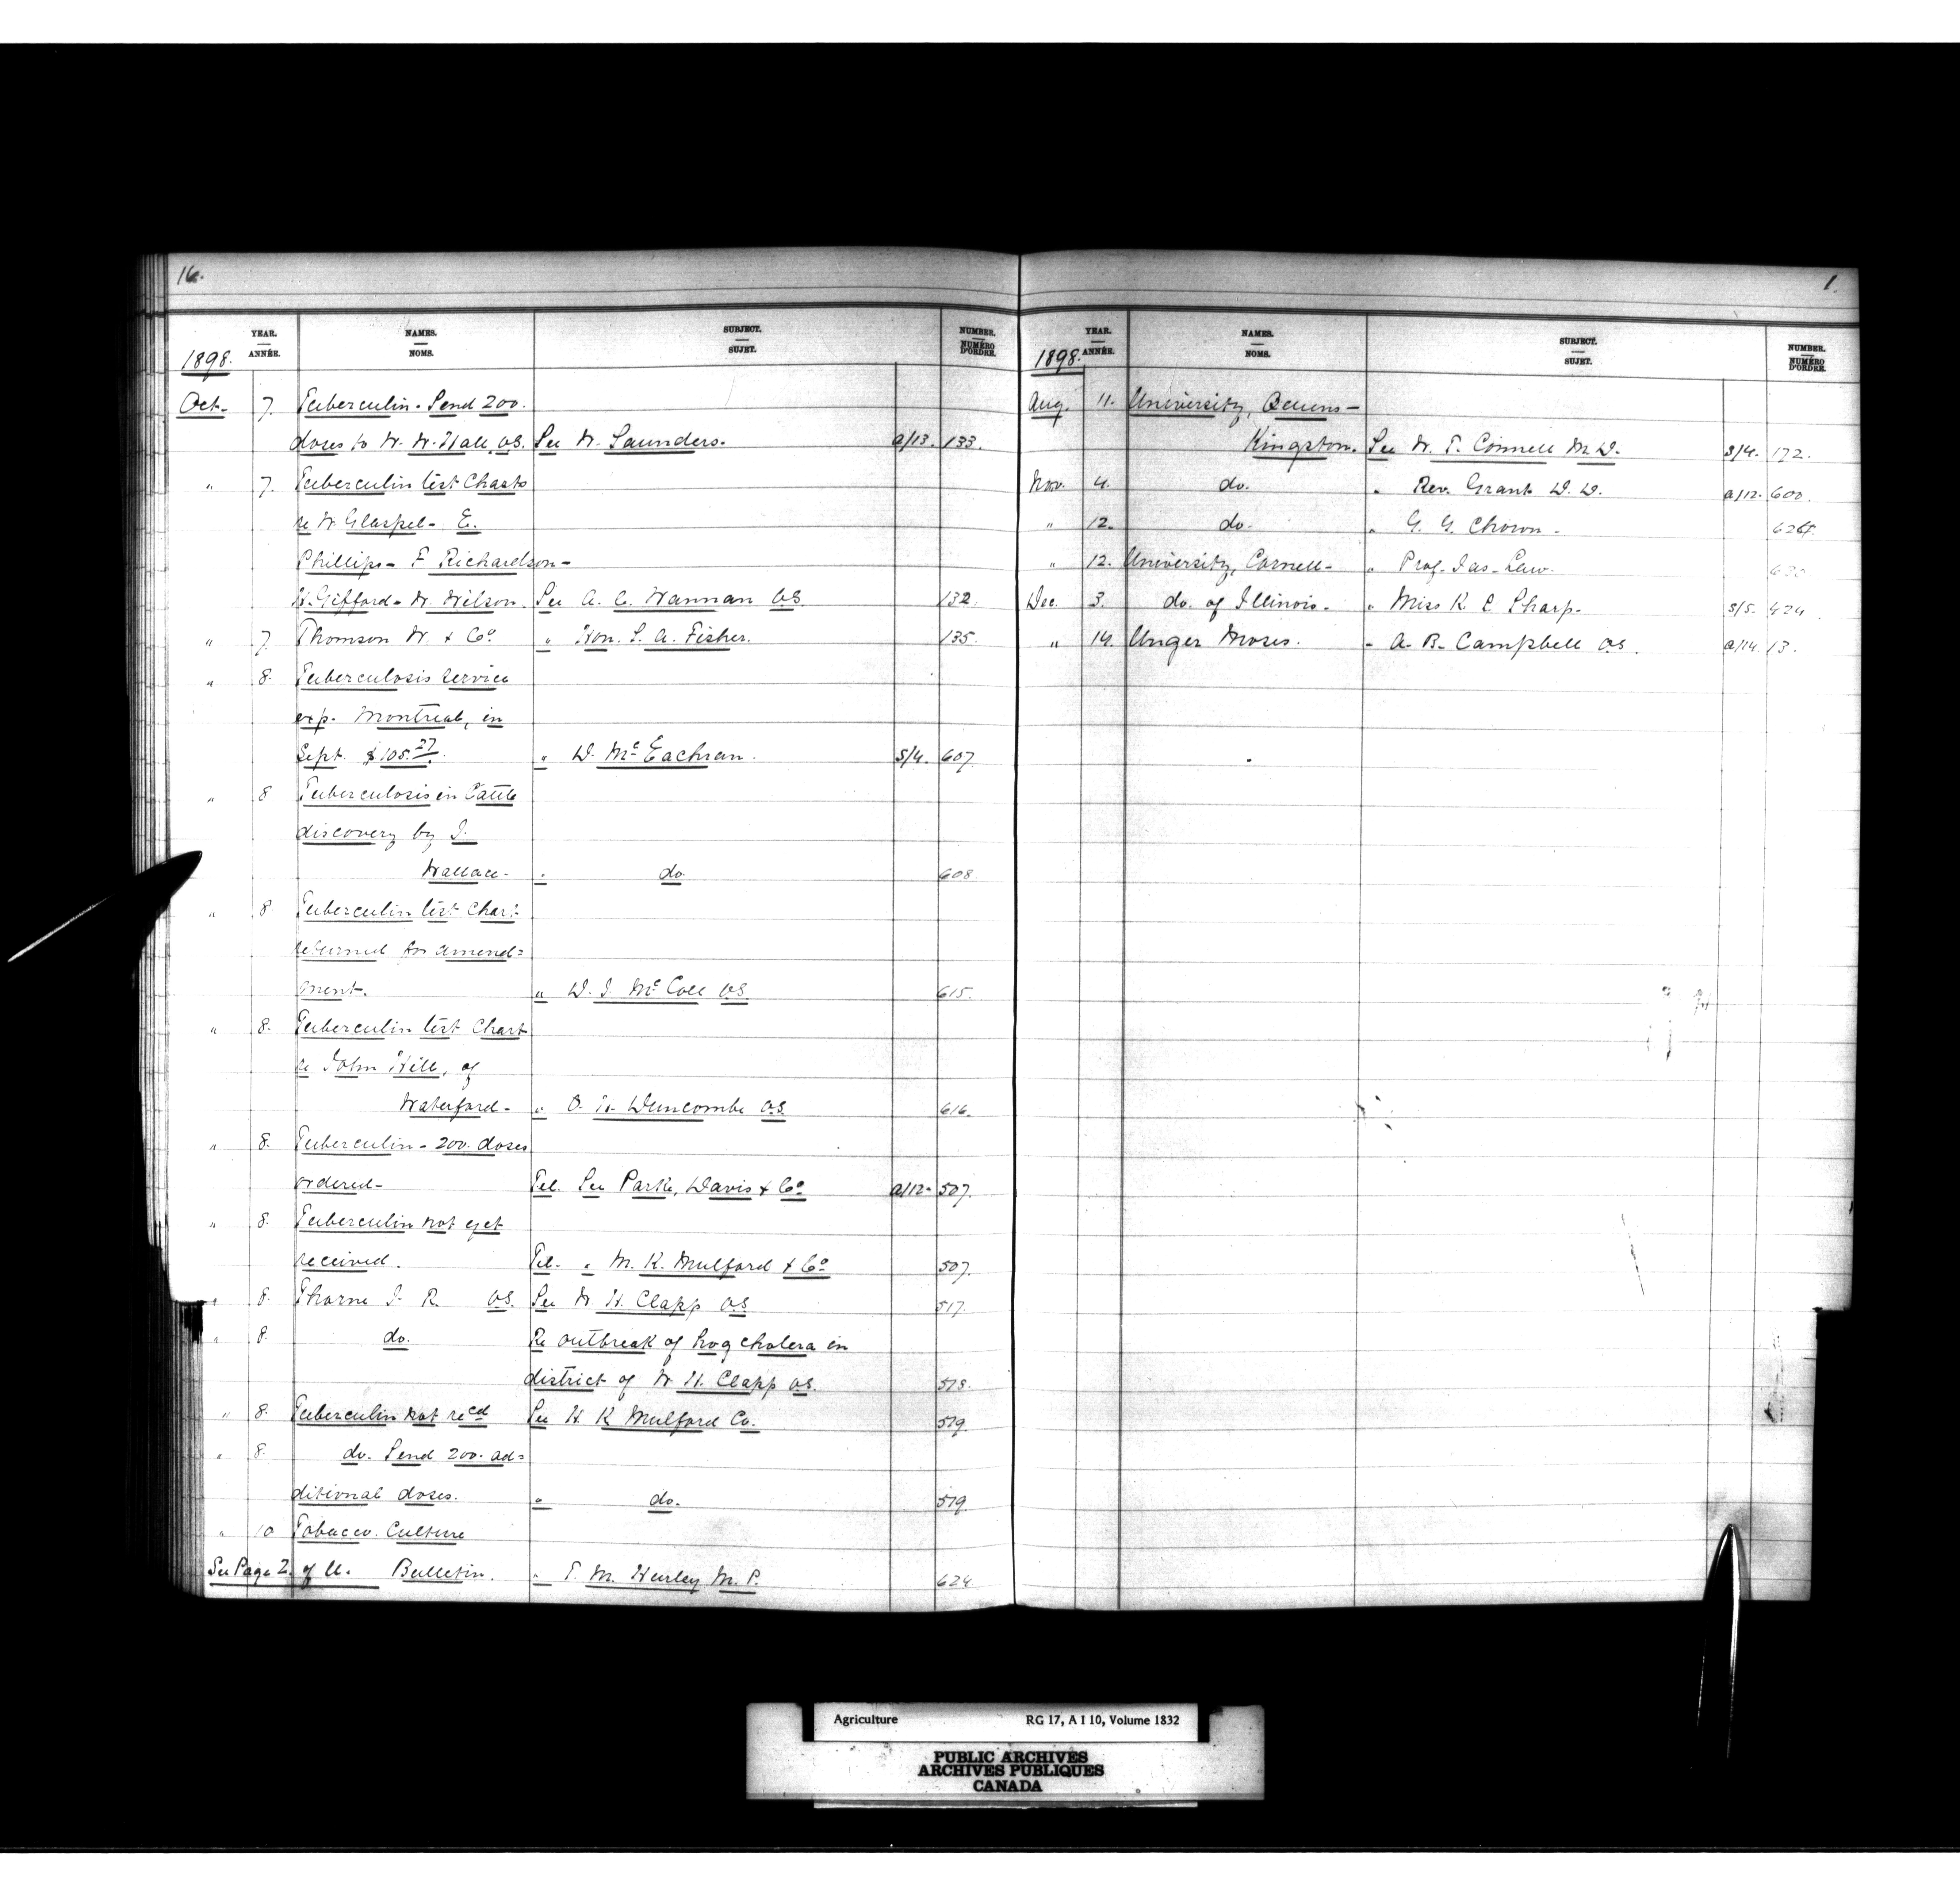 16.
YEAR. NAMES. SUBJECT. NUMBER.
ANNÉE. NOMS. SUJET. NUMÉRO D'ORDRE.
1898.
Oct. 7. Tuberculin - Send 200.
doses to W. W. Hall, V.S. See W. Saunders. a/13. 133.
" 7. Tuberculin test Charts
re W Glaspel - E.
Phillips - F Richardson -
H. Gifford - W. Wilson. See A. C. Wannan V.S. 132.
" 7. Thomson W. & Co. " Hon. S. A. Fisher. 135.
" 8. Tuberculosis service
exp. Montreal, in
Sept. $105.27. " D. McEachran. S/4. 607.
" 8 Tuberculosis in Cattle
discovery by J.
Wallace - " do. 608
" 8. Tuberculin test Chart
returned for amend=
ment. " D. J. McColl V.S. 615.
" 8. Tuberculin test Chart
re John Hill, of
Waterford - " O. H. Duncombe V.S. 616.
" 8. Tuberculin - 200. doses
ordered - Tel. See Parke, Davis & Co. a/12. 507.
" 8. Tuberculin not yet
received. Tel. " M. K. Mulford & Co. 507.
" 8. Thorne J. R. V.S. See W. H. Clapp V.S. 517.
" 8. do. Re outbreak of hog cholera in
district of W. H. Clapp V.S. 518.
" 8. Tuberculin not recd See H K Mulford Co. 519.
" 8. do. Send 200. ad=
ditional doses. " do. 519.
" 10 Tobacco Culture
See Page 2. of U. Bulletin. " T. M. Hurley M.P. 624
1.
YEAR. NAMES. SUBJECT. NUMBER.
ANNÉE. NOMS. SUJET. NUMÉRO D'ORDRE.
1898.
Aug. 11. University, Queens -
Kingston. See W. T. Connell M.D. S/4. 172.
Nov. 4. do. " Rev. Grant D.D. a/12. 600.
" 12. do. " G. Y. Chown -
" 12. University, Cornell - " Prof. Jas. Law. 630
Dec. 3. do. of Illinois. " Miss K. L. Sharp. S/5. 424.
" 14. Unger Moses. " A. B. Campbell V.S. a/14. 13.
Agriculture RG 17, A I 10, Volume 1832
PUBLIC ARCHIVES
ARCHIVES PUBLIQUES
CANADA